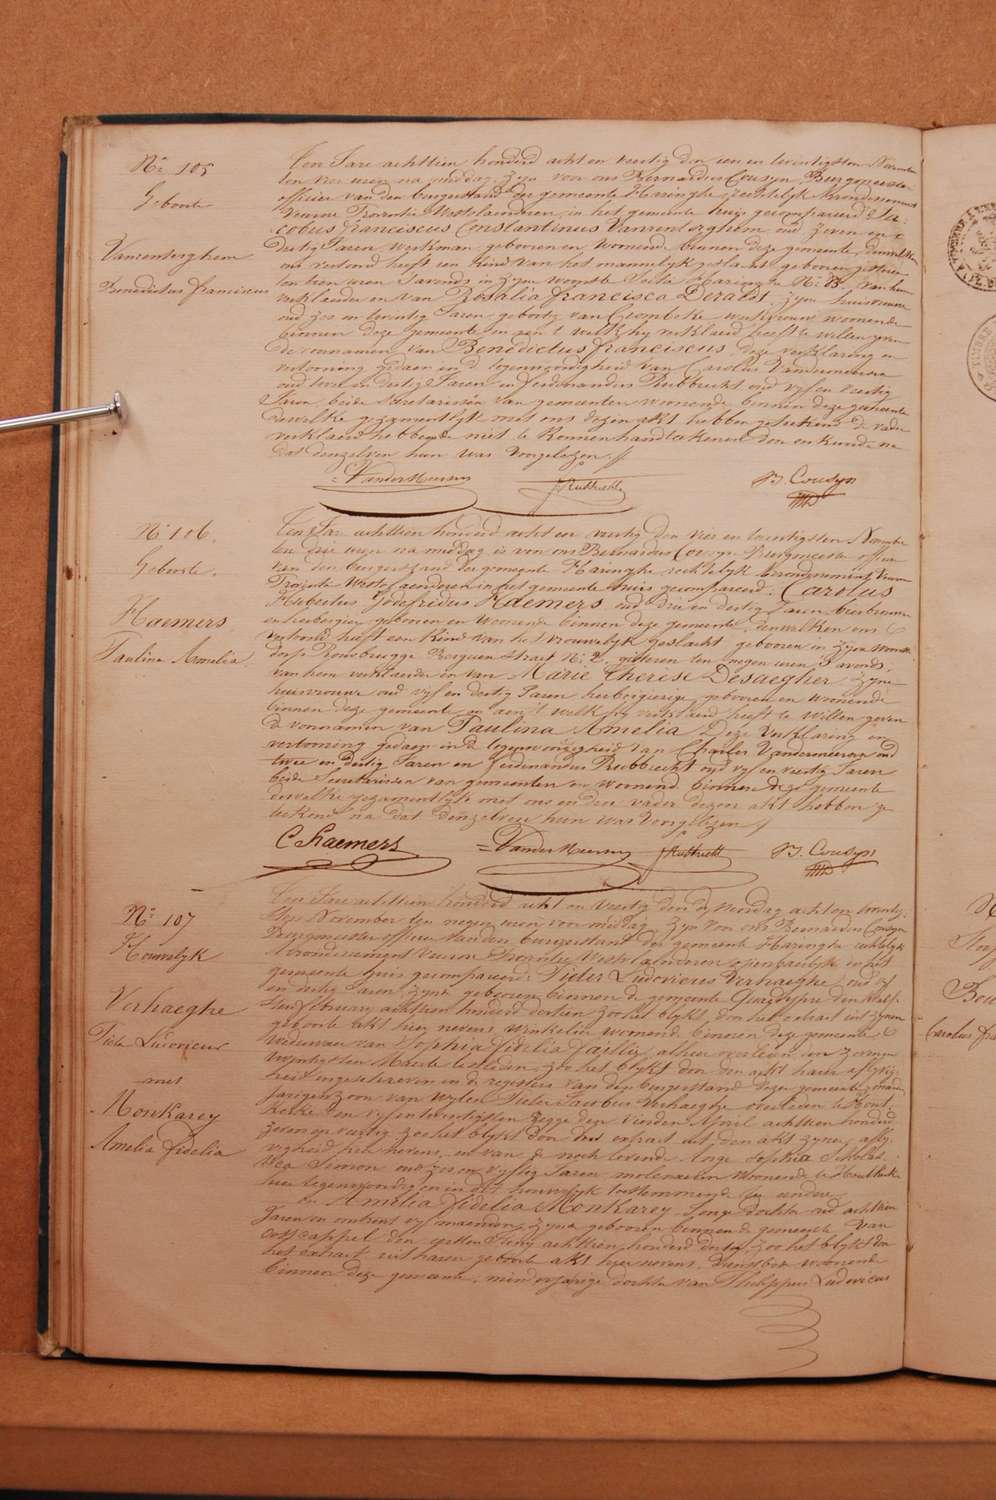 Nr 105
Geboorte
Vanrenterghem
Benedictus franciscus
Ten Jare achttien honderd acht en veertig den een en twintigsten November
ten vier uren na middag, zyn voor ons Bernardus Cousyn Burgmeester
officier van den burgerstand der gemeente Haringhe, rechtelyk Arondissement
Veurne Provintie Westvlaendren, in het gemeente huys gecompareerd Ja-
cobus Franciscus Constantinus Vanrenterghem oud zeven en
dertig Jaren werkman geboren en woonende binnen deze gemeente, denwelken
ons vertoond heeft een Kind van het mannelyk geslacht geboren gisteren
ten tien uren s'avonds in zyne woonste Haringhe Nr 13, van hem
verklaerder en van Rosalia francisca Deraldt, zyne huisvrouwe
oud zes en twintig Jaren geboortig van Crombeke werkvrouw woonende
binnen deze gemeente en aen 't welk hy verklaerd heeft te willen geven
de voornamen van Benedictus franciscus, deze verklaring en
vertooning gedaen in de tegenwoordigheid van Carolus Vandermeersen
oud twee en dertig Jaren en Ferdinandus Rubbrecht oud vyf en veertig
Jaren, beide secretarissen van gemeenten woonende binnen deze gemeente
dewelke gezamentlyk met ons dezen akt hebben geteekend de vader
verklaerd hebbende niet te konnen handteekenen door onkunde na
dat denzelven hun was voorgelezen.
C Vandermeersen F Rubbrecht B. Cousyn
Nr 106.
Geboorte.
Haemers
Paulina Amelia.
Ten Jare achttien honderd acht en veertig den vier en twintigsten November
ten drie uren na middag is voor ons Bernardus Cousyn Burgmeester officier
van den burgerstand der gemeente Haringhe rechtelyk Arondissement Veurne
Provintie Westvlaenderen in het gemeente huis gecompareerd: Carolus
Hubertus Godefridus Haemers oud drie en dertig Jaren bierbrouwer
en herbergier geboren en woonende binnen deze gemeente, denwelken ons
vertoond heeft een Kind van het vrouwelyk geslacht geboren in zyne woonste
dorp Rousbrugge Berguen Straet Nr 2, gisteren ten negen uren s'avonds,
van hem verklaerder en van Marie Therese Desaegher zyne
huisvrouwe oud vyf en dertig Jaren herbergierige geboren en woonende
binnen deze gemeente en aen 't welk hy verklaerd heeft te willen geven
de voornamen van Paulina Amelia Deze verklaring en
vertooning gedaen in de tegenwoordigheid van Charles Vandermeersen oud
twee en dertig Jaren en Ferdinandus Rubbrecht oud vyf en veertig Jaren
beide Secretarissen van gemeenten en woonend binnen deze gemeente
dewelke gezamentlyk met ons en den vader dezen akt hebben ge-
teekend na dat denzelven hun was voorgelezen
C. Haemers C Vandermeersen F Rubbrecht B. Cousyn
Nr 107
Houwelyk
Verhaeghe
Pieter Ludovicus
met
Monkarey
Amelia fidelia
Ten Jare achttien honderd acht en veertig den dynsdag acht en twintig-
sten November ten negen uren voor middag, zyn voor ons Bernardus Cousyn
Burgmeester officier van den burgerstant der gemeente Haringhe rechtelyk
Arondissement Veurne Provintie Westvlaenderen openbaerlyk in het
gemeente huis gecompareerd: Pieter Ludovicus Verhaeghe oud vyf
en dertig Jaren, zynde geboren binnen de gemeente Quaedypre den twelf-
sten february achttien honderd dertien zoo het blykt, door het extract uit zynen
geboorte akt hier nevens, winkelier woonende binnen deze gemeente
Weduwaer van Sophia Fidelia Faillie, alhier overleden den zeven en
twintigsten Maerte lestleden, zoo het blykt door den akt harer aflyvig-
heid ingeschreven in de registers van den burgerstand dezer gemeente, meerder
Jarigen zoon van wylen Pieter Jacobus Verhaeghe overleden te Hout-
kerke den vyf en twintigsten April achttien honderd
zeven en veertig zoo het blykt door het extract uit den akt zyner afly-
vigheid hier nevens, en van de noch levende
Simon oud zes en vyftig Jaren, molenaerin woonende te Houtkerke
hier tegenwoordig en in dit houwelyk toestemmende ter eendre
En Amelia Fidelia Monkarey Jonge dochter oud achttien
Jaren en ontrent vyf maenden, zynde geboren binnen de gemeente van
Oostcappel den Juny achttien honderd dertig, zoo het blykt door
het extract uit haren geboorte akt hier nevens, dienstbode woonende
binnen deze gemeente, minderjarige dochter van Philippus Ludovicus